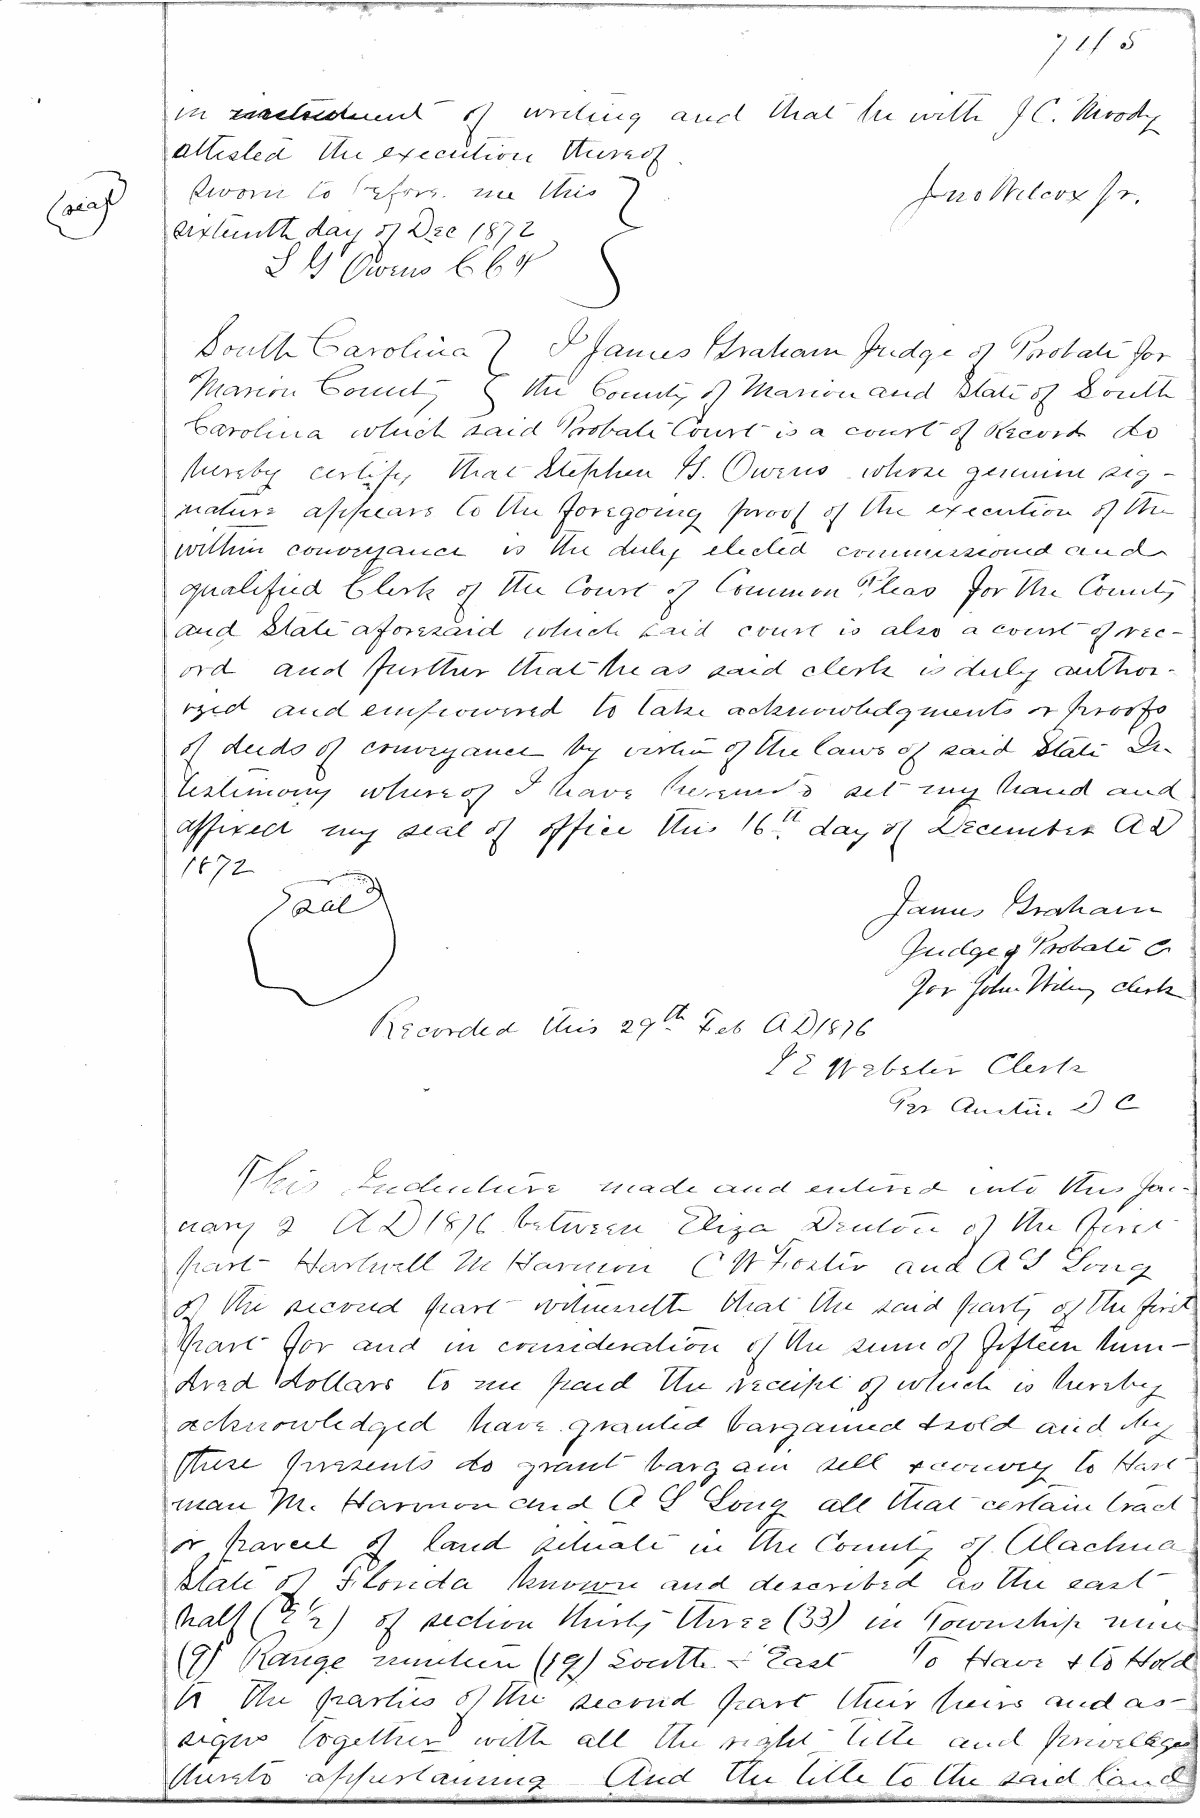 715
in instrument of writing and that he with J C. Moody
attested the execution thereof.
sworn to before me this
(seal)
Jno Wilcox Jr.
sixteenth day of Dec 1872
S G Owens C C P
South Carolina } I James Graham Judge of Probate for
Marion County } the County of Marion and State of South
Carolina which said Probate Court is a court of Record do
hereby certify that Stephen G. Owens whose genuine sig-
nature appears to the foregoing proof of the execution of the
within conveyance is the duly elected commissioned and
qualified Clerk of the Court of Common Pleas for the County
and State aforesaid which said court is also a court of rec-
ord and further that he as said clerk is duly author-
ized and empowered to take acknowledgments or proofs
of deeds of conveyance by virtue of the laws of said State In
testimony whereof I have hereunto set my hand and
affixed my seal of office this 16th day of December A D
1872
Seal
James Graham
Judge of Probate &
for John Wilcox clerk
Recorded this 29th Feb A D 1876
J E Webster Clerk
Per Austin D C
This Indenture made and entered into this Jan-
uary 2 A D 1876 between Eliza Denton of the first
part Hartwell M Harmon C W Foster and A S Long
of the second part witnesseth that the said party of the first
part for and in consideration of the sum of fifteen hun-
dred dollars to me paid the receipt of which is hereby
acknowledged have granted bargained & sold and by
these presents do grant bargain sell & convey to Hart
man M. Harmon and A S Long all that certain tract
or parcel of land situate in the County of Alachua
State of Florida known and described as the east
half (E ½) of section thirty three (33) in Township nine
(9) Range nineteen (19) South & East To Have & to Hold
to the parties of the second part their heirs and as-
signs together with all the right title and privileges
thereto appertaining And the title to the said land